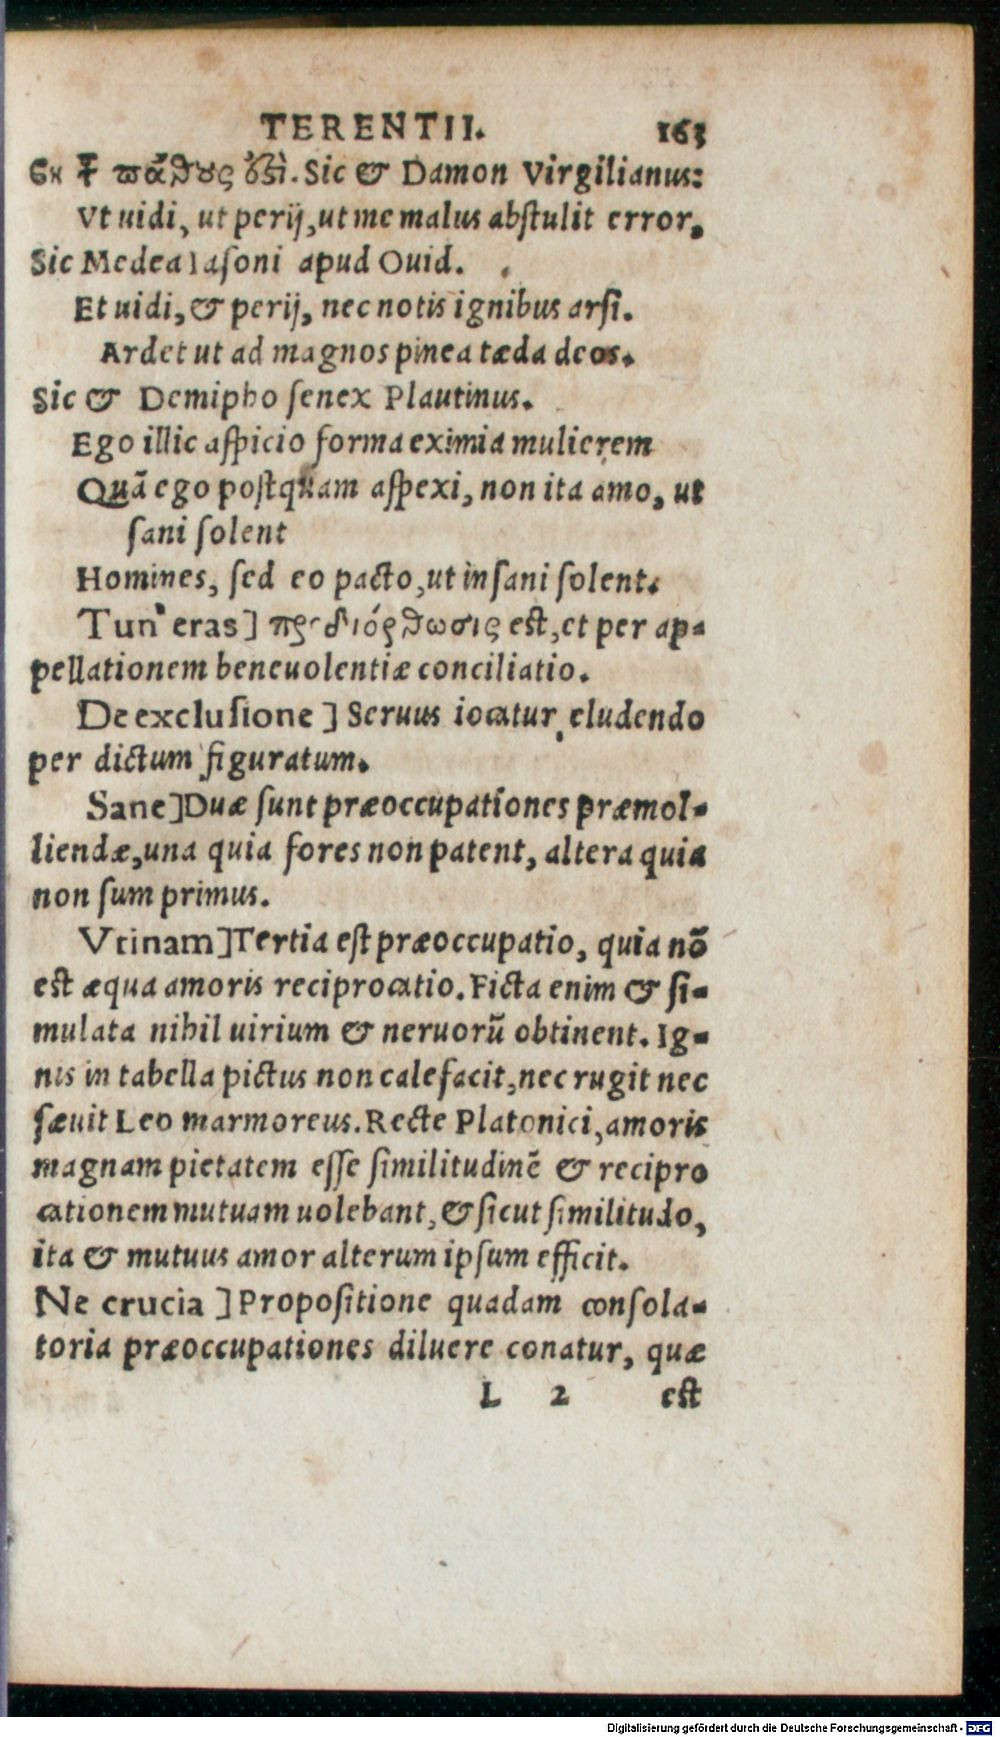 TERENTII. 163
ἐκ τοῦ πάθους ἐστὶ. Sic & Damon Virgilianus:
Vt uidi, ut perij, ut me malus abstulit error.
Sic Medea Iasoni apud Ouid.
Et uidi, & perij, nec notis ignibus arsi.
Ardet ut ad magnos pinea tæda deos.
Sic & Demipho senex Plautinus.
Ego illic aspicio forma eximia mulierem
Quā ego postquam aspexi, non ita amo, ut
sani solent
Homines, sed eo pacto, ut insani solent.
Tun' eras] προδιόρθωσις est, et per ap-
pellationem beneuolentiæ conciliatio.
De exclusione] Seruus iocatur eludendo
per dictum figuratum.
Sane] Duæ sunt præoccupationes præmol-
liendæ, una quia fores non patent, altera quia
non sum primus.
Vtinam] Tertia est præoccupatio, quia nō
est æqua amoris reciprocatio. Ficta enim & si-
mulata nihil uirium & neruorū obtinent. Ig-
nis in tabella pictus non calefacit, nec rugit nec
sæuit Leo marmoreus. Recte Platonici, amoris
magnam pietatem esse similitudinē & recipro
cationem mutuam uolebant, & sicut similitudo,
ita & mutuus amor alterum ipsum efficit.
Ne crucia] Propositione quadam consola-
toria præoccupationes diluere conatur, quæ
L 2 est
Digitalisierung gefördert durch die Deutsche Forschungsgemeinschaft - DFG